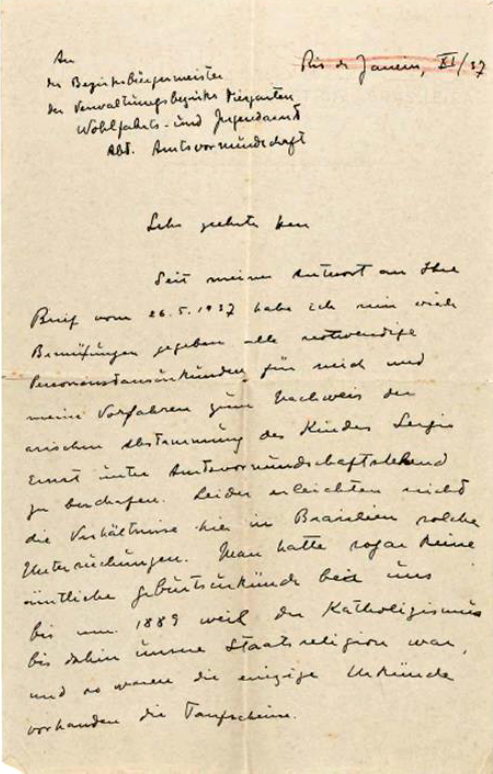 An
Rio de Janeiro, XI/37
den Bezirksbürgermeister
des Verwaltungsbezirks Tiergarten
Wohlfahrts- und Jugendamt
Abt. Amtsvormundschaft
Sehr geehrter Herr
Seit meiner Antwort an Ihre
Brief vom 26.5.1937 habe ich mir viele
Bemühungen gegeben alle notwendige
Personenstandsurkunden für mich und
meine Vorfahren zum Nachweis der
arischen Abstammung des Kindes Sergio
Ernst unter Amtsvormundschaftstehend
zu beschafen. Leider erleichten nicht
die Verhältnisse hier in Brasilien solche
Untersuchungen. Man hatte sogar keine
amtliche Geburtsurkunde bei uns
bis um 1889 weil der Katholizismus
bis dahin unsere Staatsreligion war,
und so waren die einzige Urkunde
vorhanden die Taufscheine.